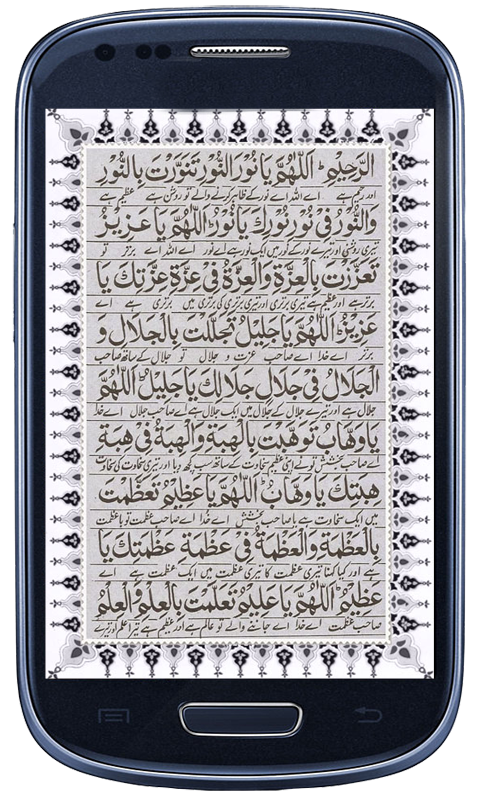 الرَّحِيْمِ اَللّٰهُمَّ يَا نُوْرَ النُّوْرِ تَنَوَّرْتَ بِالنُّوْرِ
اور رحیم ہے اے اللہ اے نور کے ظاہر کرنے والے تو روشن ہے عظیم ہے
وَالنُّوْرُ فِيْ نُوْرِ نُوْرِكَ يَا نُوْرُ اَللّٰهُمَّ يَا عَزِيْزُ
تیری روشنی اور تیرے نور کے نور میں ایک نور ہے اے نور اے اللہ اے برتر تو
تَعَزَّزْتَ بِالْعِزَّةِ وَالْعِزَّةُ فِيْ عِزَّةِ عِزَّتِكَ يَا
برتر ہے اور عظیم ہے تیری برتری اور تیری برتری کی برتری میں برتری ہے اے
عَزِيْزُ اَللّٰهُمَّ يَا جَلِيْلُ تَجَلَّلْتَ بِالْجَلَالِ وَ
برتر اے خدا اے صاحب عزت و جلال تو جلال کے ساتھ صاحب
الْجَلَالُ فِيْ جَلَالِ جَلَالِكَ يَا جَلِيْلُ اَللّٰهُمَّ
جلال ہے اور تیرے جلال کے جلال میں ایک جلال ہے اے صاحب جلال اے خدا
يَا وَهَّابُ تَوَهَّبْتَ بِالْهِبَةِ وَالْهِبَةُ فِيْ هِبَةِ
اے صاحب بخشش تونے اپنی عظیم سخاوت کے ساتھ سب کچھ دیا اور تیری سخاوت کی سخاوت
هِبَتِكَ يَا وَهَّابُ اَللّٰهُمَّ يَا عَظِيْمُ تَعَظَّمْتَ
میں ایک سخاوت ہے یا صاحب بخشش اے خدا اے صاحب عظمت تو باعظمت
بِالْعَظْمَةِ وَالْعَظْمَةُ فِيْ عَظْمَةِ عَظْمَتِكَ يَا
ہے اور کیا کہنا تیری عظمت کا تیری عظمت میں ایک عظمت ہے اے
عَظِيْمُ اَللّٰهُمَّ يَا عَلِيْمُ تَعَلَّمْتَ بِالْعِلْمِ وَالْعِلْمُ
صاحب عظمت اے خدا اے جاننے والے تو عالم ہے اور عظیم ہے تیرا علم اور تیرے